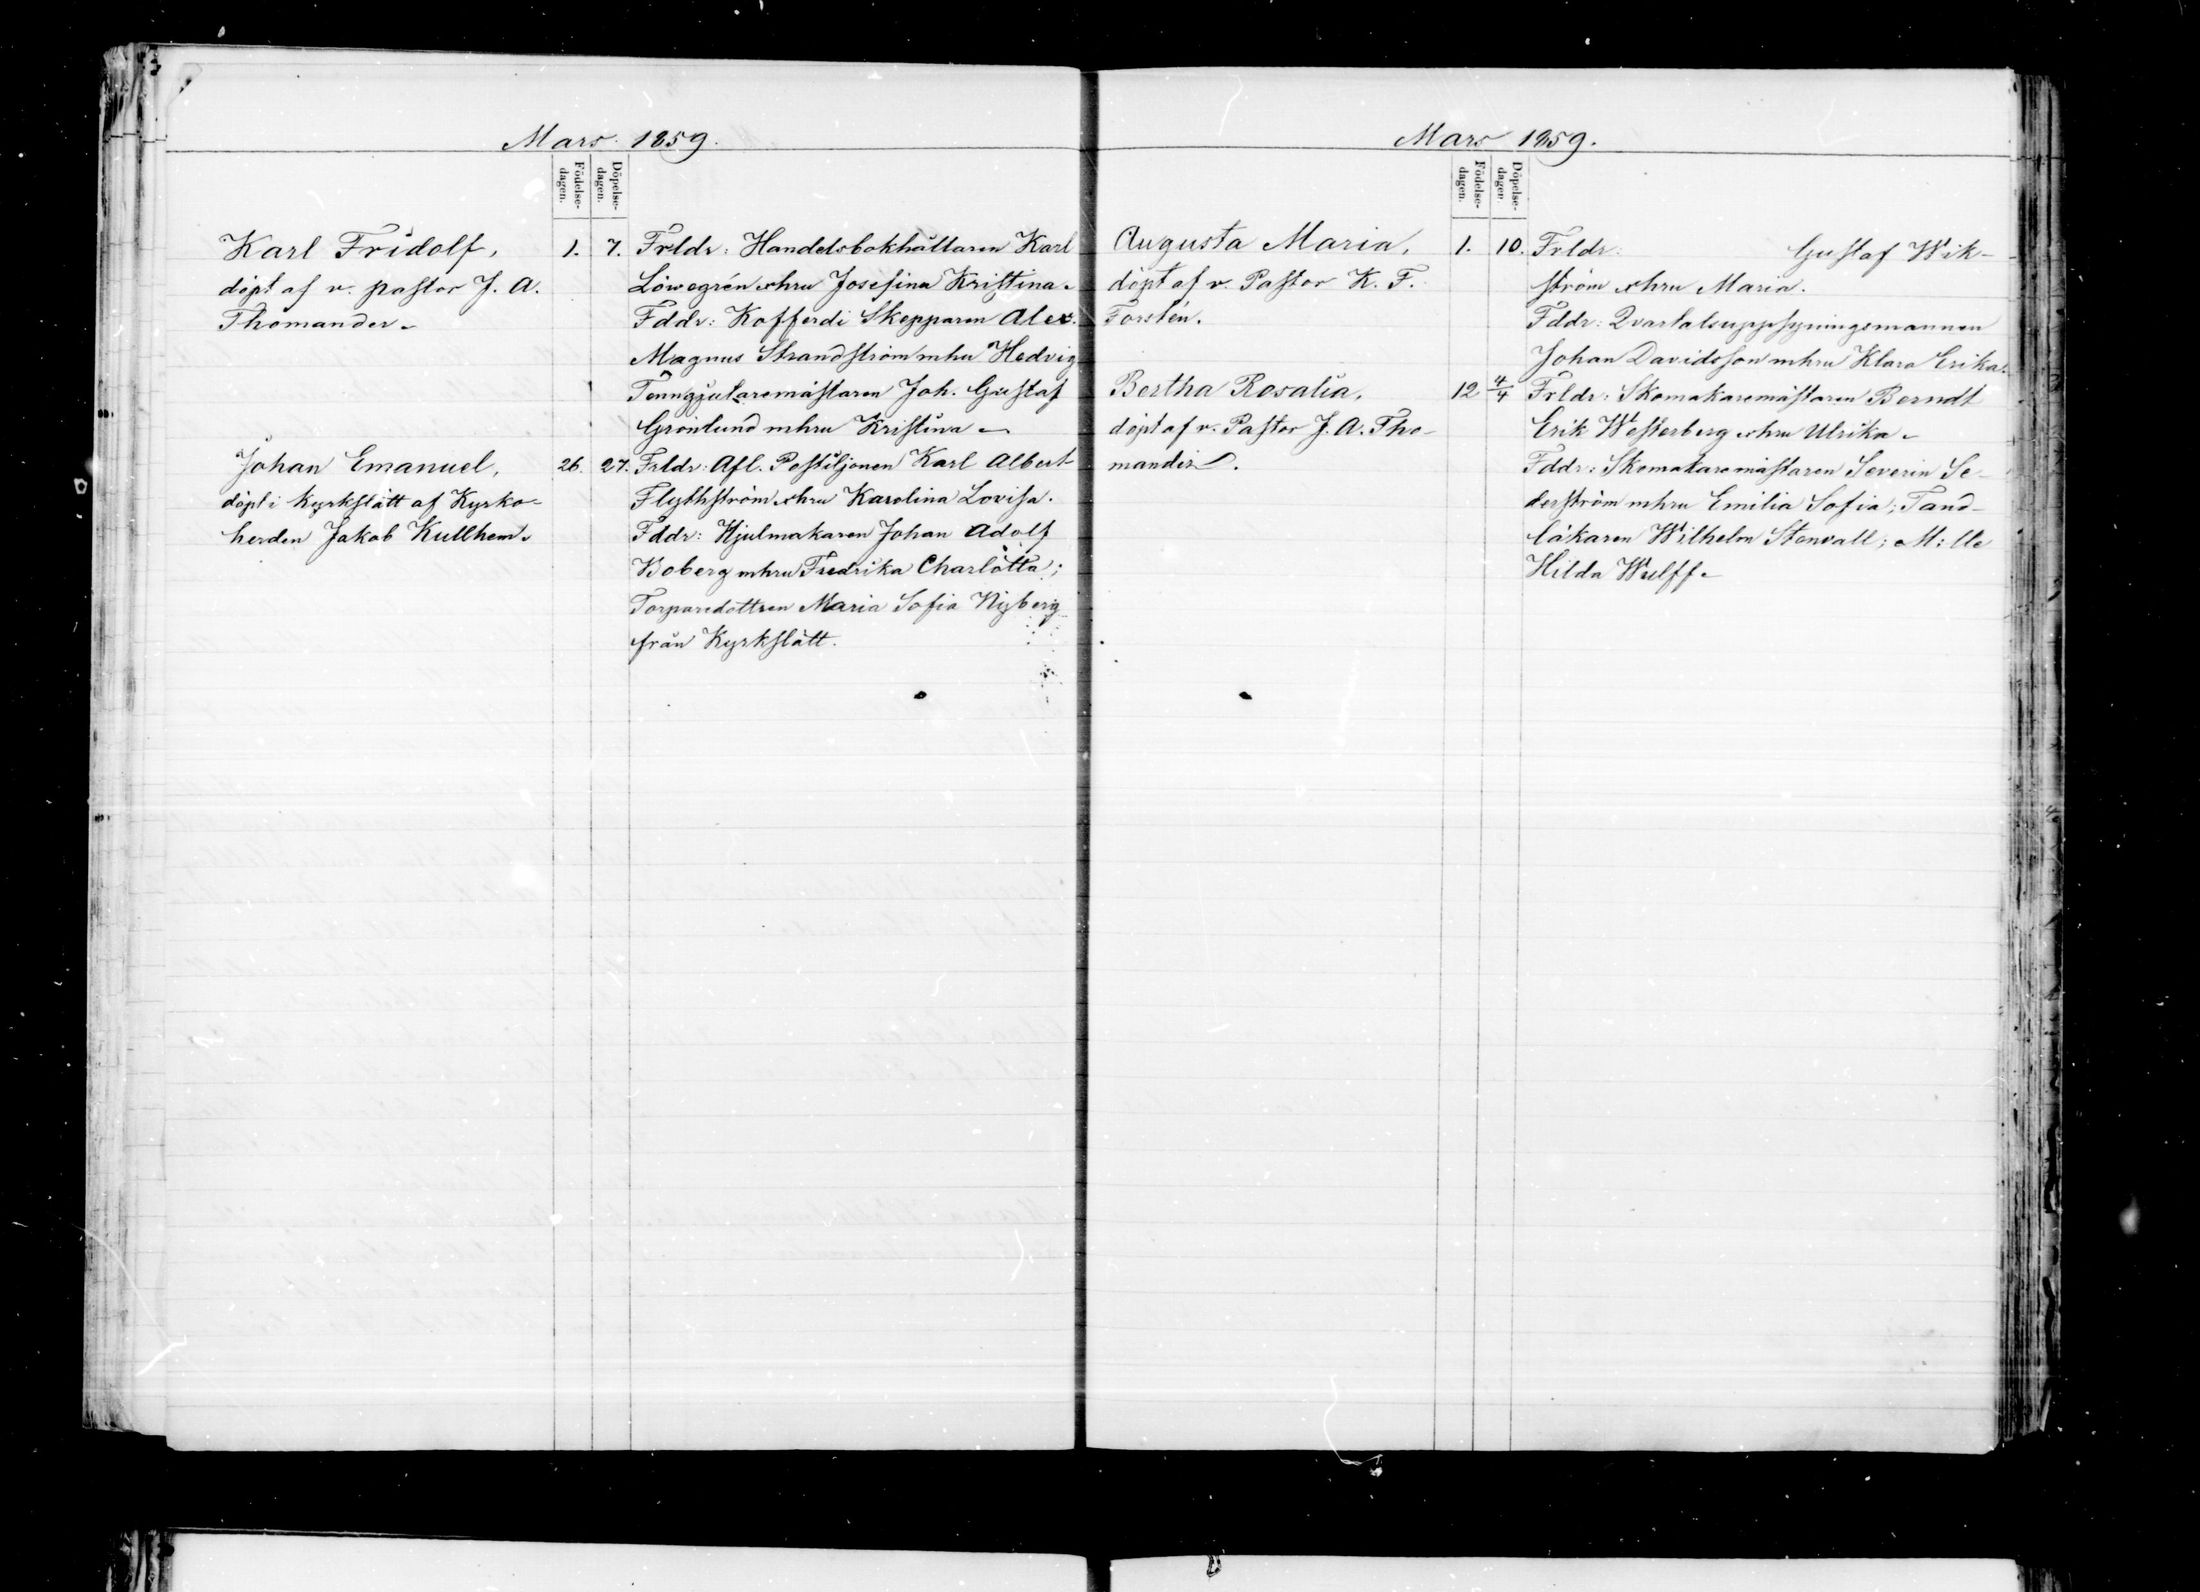 Mars 1859.
Födelse-
dagen.
Döpelse-
dagen.
Karl Fridolf,
döpt af v. pastor J. A.
Thomander.
1. 7.
Frldr: Handelsbokhållaren Karl
Löwegrén o hru Josefina Kristina.
Fddr: Kofferdi Skepparen Alex.
Magnus Strandström m hu Hedvig
Tenngjutaremästaren Joh. Gustaf
Grönlund m hru Kristina
Johan Emanuel,
döpt i Kyrkslätt af Kyrko-
herden Jakob Kullhem.
26. 27.
Frldr: Afl. Postiljonen Karl Albert
Flythström o hru Karolina Lovisa.
Fddr: Hjulmakaren Johan Adolf
Boberg m hru Fredrika Charlotta;
Torparedottren Maria Sofia Nyberg
från Kyrkslätt.
Mars 1859.
Födelse-
dagen.
Döpelse-
dagen.
Augusta Maria,
döpt af v. Pastor K. F.
Forstén.
1. 10.
Frldr: Gustaf Wik-
ström o hru Maria.
Fddr: Qvartalsuppsyningsmannen
Johan Davidsson m hru Klara Erika.
Bertha Rosalia,
döpt af v. Pastor J. A. Tho-
mander.
12 4/4
Frldr: Skomakaremästaren Berndt
Erik Westerberg o hru Ulrika.
Fddr: Skomakaremästaren Severin Se-
derström m hru Emilia Sofia; Tand-
läkaren Wilhelm Stenvall; M:lle
Hilda Wulff.